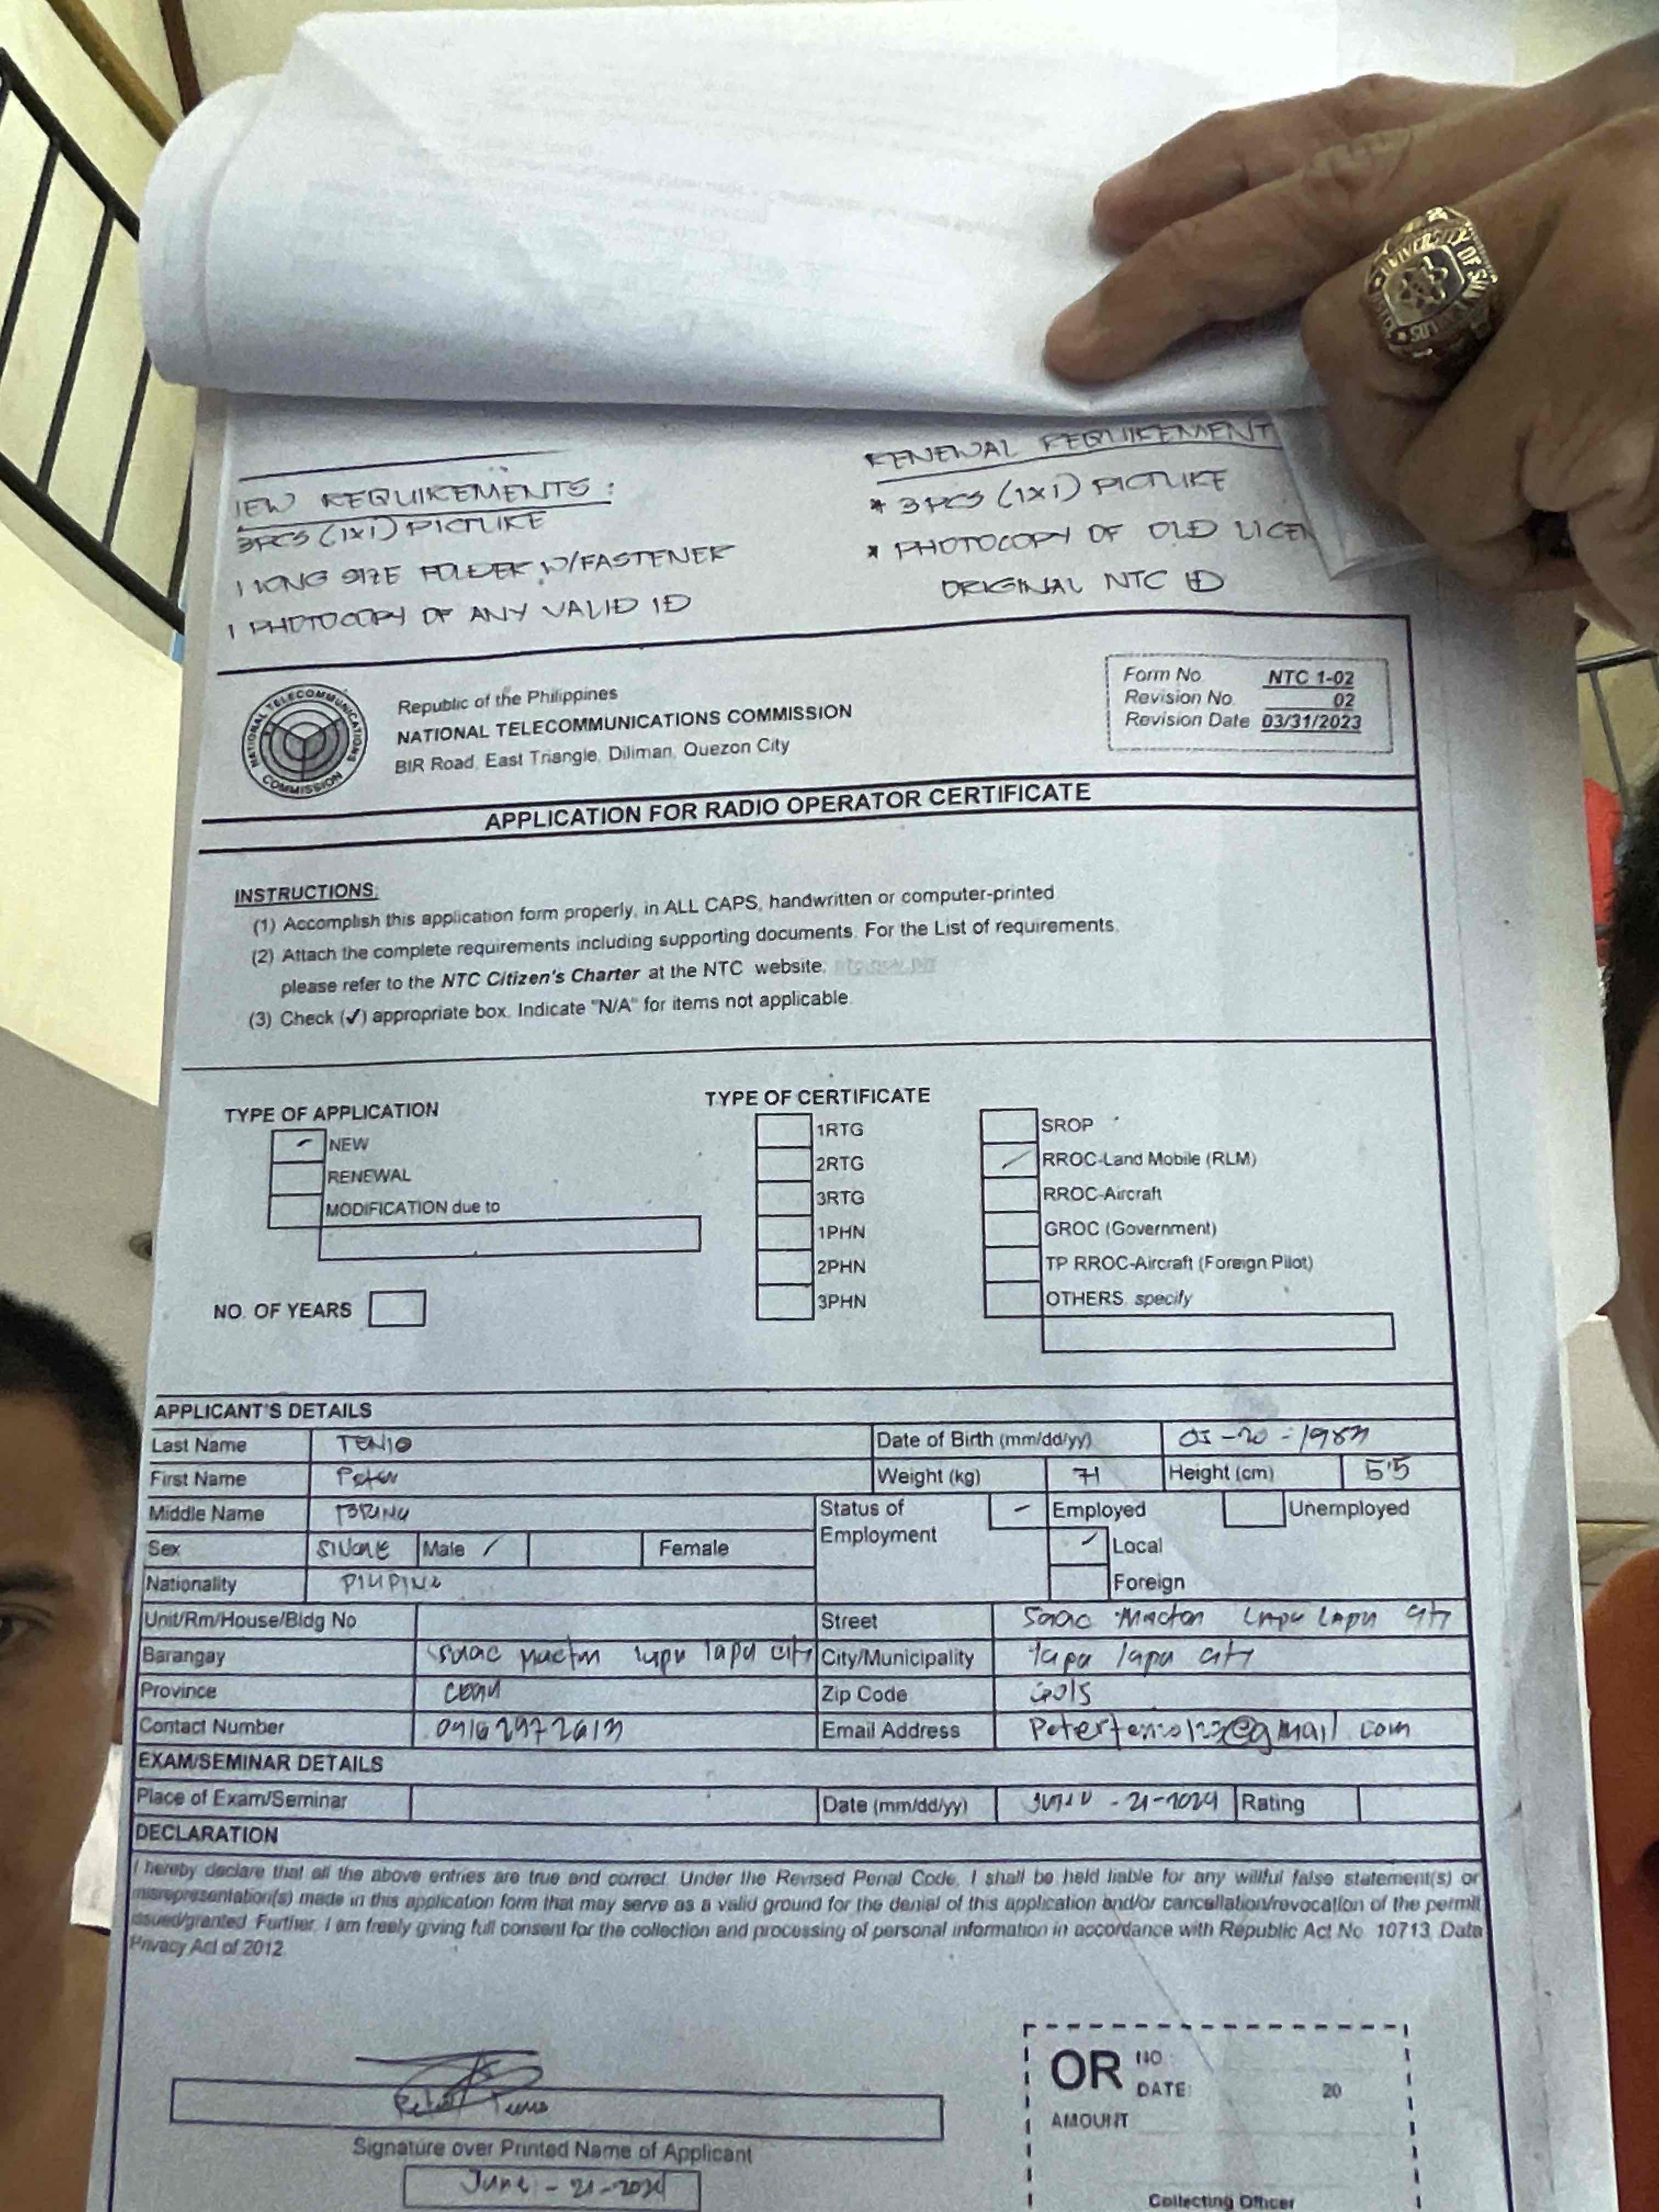 UNIVERSITY OF SAN CARLOS
NEW REQUIREMENTS:
3PCS (1X1) PICTURE
1 LONG SIZE FOLDER W/FASTENER
1 PHOTOCOPY OF ANY VALID ID
RENEWAL REQUIREMENT
* 3PCS (1X1) PICTURE
* PHOTOCOPY OF OLD LICEN
ORIGINAL NTC ID
NATIONAL TELECOMMUNICATIONS COMMISSION
Republic of the Philippines
NATIONAL TELECOMMUNICATIONS COMMISSION
BIR Road, East Triangle, Diliman, Quezon City
Form No. NTC 1-02
Revision No. 02
Revision Date 03/31/2023
APPLICATION FOR RADIO OPERATOR CERTIFICATE
INSTRUCTIONS:
(1) Accomplish this application form properly, in ALL CAPS, handwritten or computer-printed
(2) Attach the complete requirements including supporting documents. For the List of requirements,
please refer to the NTC Citizen's Charter at the NTC website:
(3) Check (✓) appropriate box. Indicate "N/A" for items not applicable.
TYPE OF APPLICATION
NEW
RENEWAL
MODIFICATION due to
NO. OF YEARS
TYPE OF CERTIFICATE
1RTG
2RTG
3RTG
1PHN
2PHN
3PHN
SROP
RROC-Land Mobile (RLM)
RROC-Aircraft
GROC (Government)
TP RROC-Aircraft (Foreign Pilot)
OTHERS, specify
APPLICANT'S DETAILS
Last Name TENIO Date of Birth (mm/dd/yy)
First Name Peter Weight (kg) 71 Height (cm) 5'5
Middle Name Status of Employment Employed Unemployed
Sex SINGLE Male Female Local
Nationality PILIPINO Foreign
Unit/Rm/House/Bldg No Street Saac Mactan Lapu Lapu City
Barangay Saac Mactan lapu lapu city City/Municipality lapu lapu city
Province CEBU Zip Code 6015
Contact Number Email Address
EXAM/SEMINAR DETAILS
Place of Exam/Seminar Date (mm/dd/yy) -21-2024 Rating
DECLARATION
I hereby declare that all the above entries are true and correct. Under the Revised Penal Code, I shall be held liable for any willful false statement(s) or
misrepresentation(s) made in this application form that may serve as a valid ground for the denial of this application and/or cancellation/revocation of the permit
issued/granted. Further, I am freely giving full consent for the collection and processing of personal information in accordance with Republic Act No. 10713, Data
Privacy Act of 2012.
Signature over Printed Name of Applicant
June - 21-2024
OR NO.:
DATE: 20
AMOUNT
Collecting Officer